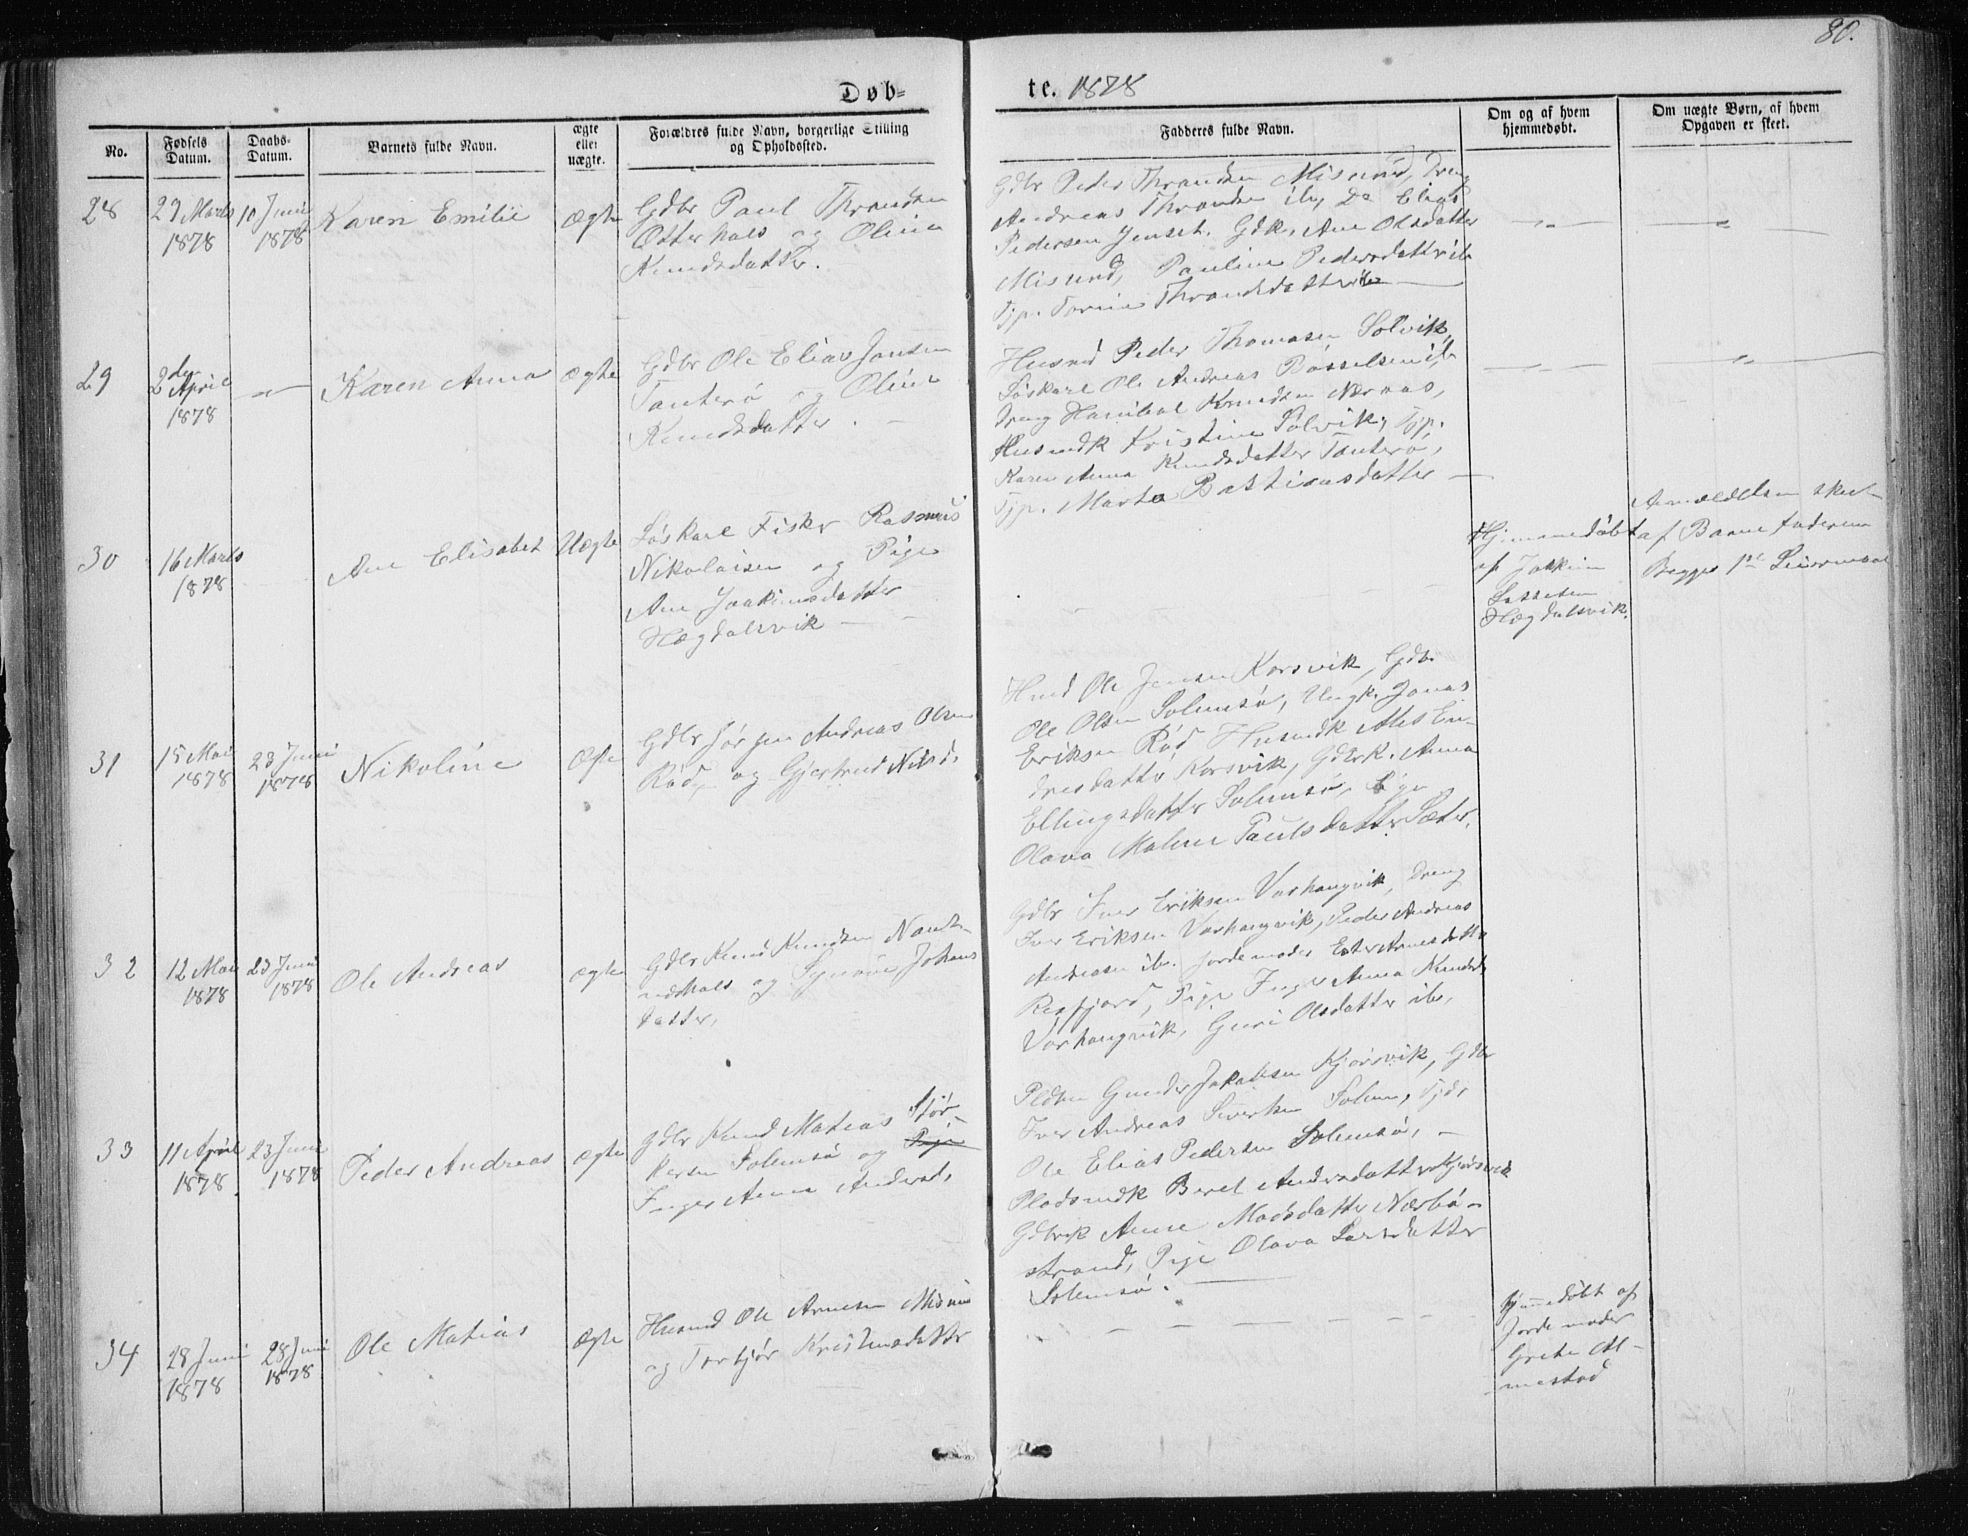 80.
Døb-
te. 1878
No.
Fødsels
Datum.
Daabs-
Datum.
Barnets fulde Navn.
ægte
eller
uægte.
Forældres fulde Navn, borgerlige Stilling
og Opholdssted.
Fadderes fulde Navn.
Om og af hvem
hjemmedøbt.
Om uægte Børn, af hvem
Opgaven er skeet.
28
29 Marts
1878
10 Juni
1878
Karen Emilie
Ægte
Gdbr Paul Throndsen
Otterhals og Oline
Knudsdatter.
Gdbr Peder Throndsen Misund, Dreng
Andreas Throndsen ib, Do Elias
Pedersen Jenset. Gdk. Ane Olsdatter
Misund, Pauline Pedersdatter ib
Tjp. Torine Throndsdatter ib
29
2den
April
1878
Karen Anna
Ægte
Gdbr Ole Elias Jonsen
Tanterø og Oline
Knudsdatter.
Husmd Peder Thomasen Solvik,
Løskarl Ole Andreas Bosselsen ib
Dreng Hanibal Knudsen Næraas,
Husmdk Kristine Solvik, Tjp.
Karen Anna Knudsdatter Tanterø,
Tjp. Marta Bastiansdatter
30
16 Marts
1878
Ane Elisabet
Uægte
Løskarl Fisker Rasmus
Nikolaisen og Pige
Ane Joakimsdatter
Hægdalsvik
Hjemmedøbt
af Jokkim
Lassesen
Hægdalsvik.
Anmeldelsen skeet
af Barnefaderen
Begges 1ste Leiermaal
31
15 Mai
1878
23 Juni
1878
Nikoline
Ægte
Gdbr Jørgen Andreas Olsen
Rød, og Gjertrud Nilsd.
Husmd Ole Jensen Korsvik, Gdbr
Ole Olsen Solemsø, Ungk. Jonas
Eriksen Rød Husmdk Mes En-
dresdatter Korsvik, Gdbrk. Anna
Ellingsdatter Solemsø, Pige
Olava Malene Paulsdatter Sæter.
32
12 Mai
1878
23 Juni
1878
Ole Andreas
Ægte
Gdbr Knud Knudsen
og Synøve Johans
datter,
Gdbr Iver Eriksen Varhaugvik, Dreng
Iver Eriksen Varhaugvik, Peder Andreas
Andreasen ib. Jordemoder Ester Arnesdatter
Røsfjord, Pige Inger Anna Knudsd
Varhaugvik, Guri Olsdatter ib,
33
11 April
1878
23 Juni
1878
Peder Andreas
Ægte
Gdbr Knud Matias Stør-
kersen Solemsø og Pige
Inger Anna Andersd.
Pldsm Gunder Jakobsen Kjørsvik, Gdbr
Iver Andreas Sivertsen Solem, Tjdr
Ole Elias Pedersen Solemsø,
Pladsmdk Beret Andersdatter Kjørsvik
Gdbrk Anne Madsdatter Nærbø-
strand, Pige Olava Larsdatter
Solemsø.
34
28 Juni
1878
28 Juni
1878
Ole Matias
Ægte
Husmd Ole Arnesen Misund
og Torbjør Kristensdatter
Hjemmedøbt af
Jordemoder
Grete Al-
mestad